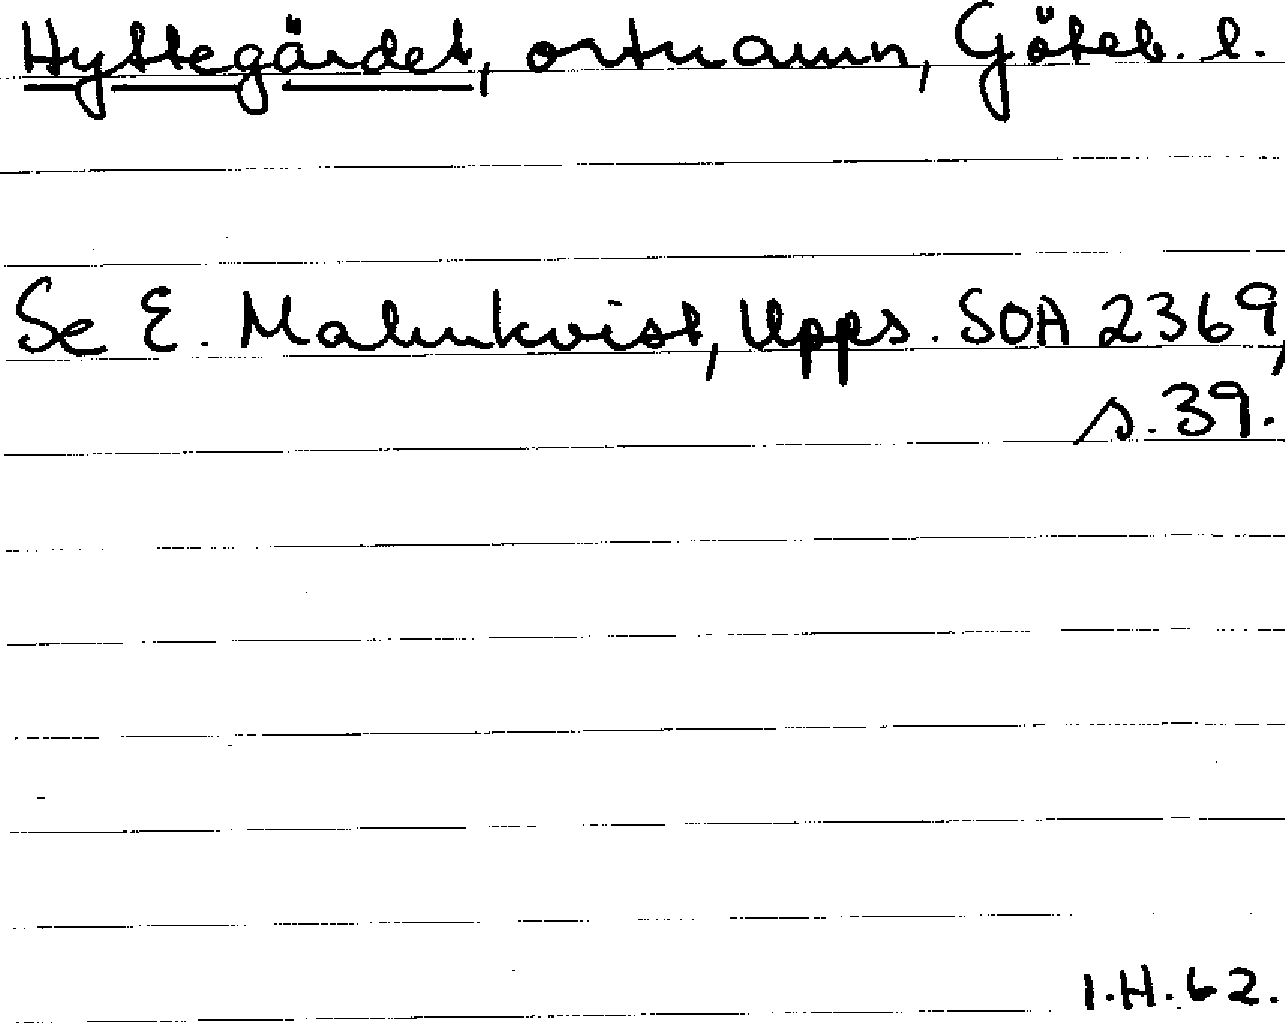 Hyttegärdet, ortnamn, Göteb. l.
Se E. Malmkvist, Upps. SOA 2369,
s. 39.
I.H. 62.